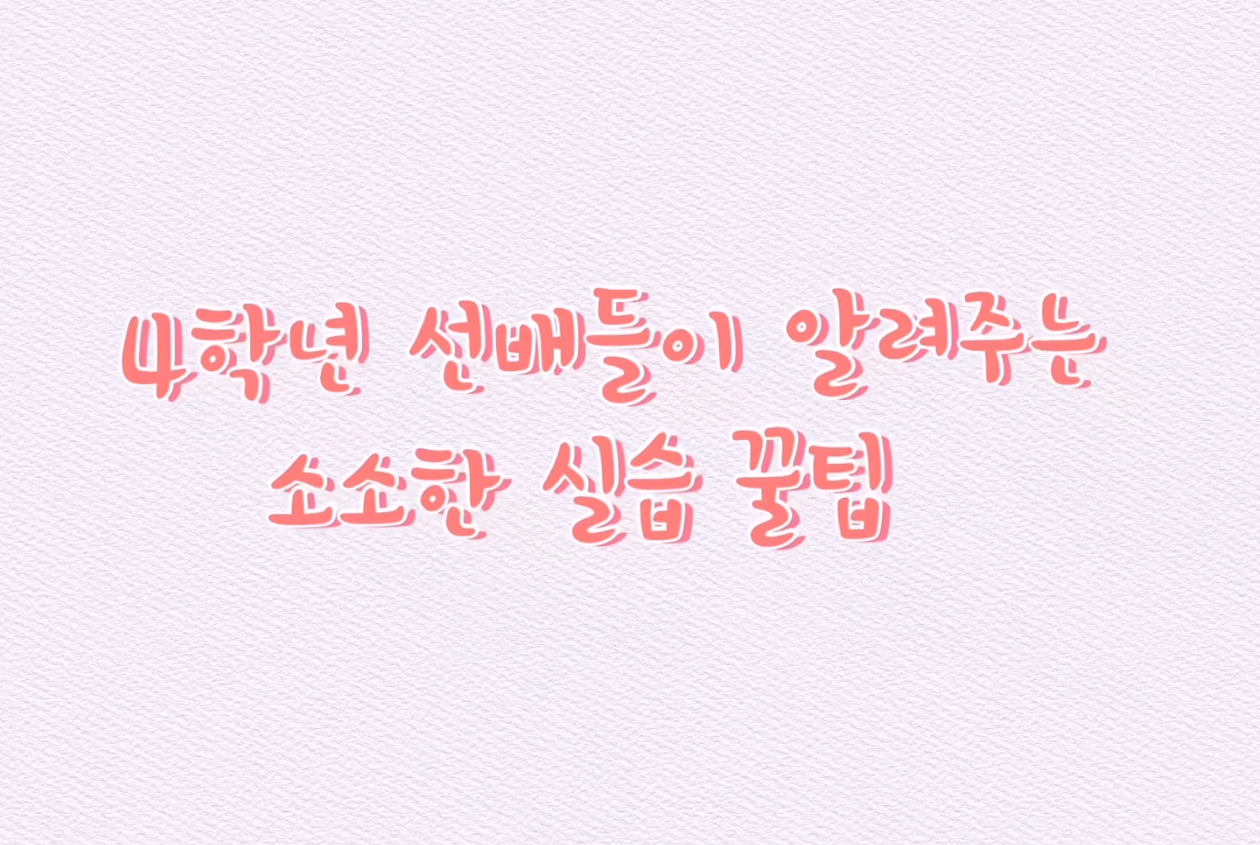 4학년 선배들이 알려주는
소소한 실습 꿀텝